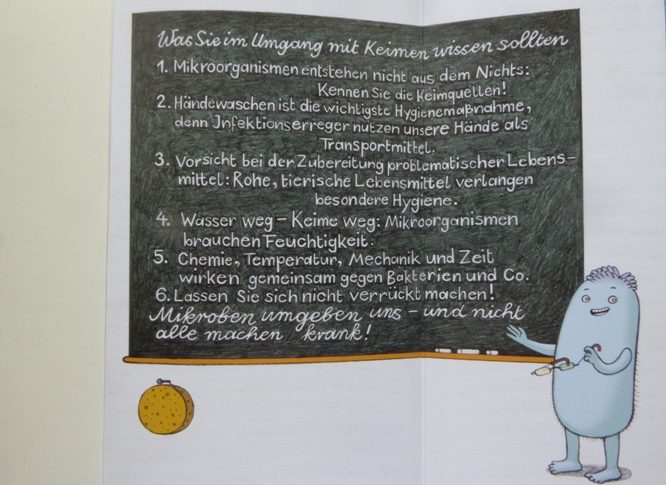 Was Sie im Umgang mit Keimen wissen sollten
1. Mikroorganismen entstehen nicht aus dem Nichts:
Kennen Sie die Keimquellen!
2. Händewaschen ist die wichtigste Hygienemaßnahme,
denn Infektionserreger nutzen unsere Hände als
Transportmittel.
3. Vorsicht bei der Zubereitung problematischer Lebens-
mittel: Rohe, tierische Lebensmittel verlangen
besondere Hygiene.
4. Wasser weg – Keime weg: Mikroorganismen
brauchen Feuchtigkeit.
5. Chemie, Temperatur, Mechanik und Zeit
wirken gemeinsam gegen Bakterien und Co.
6. Lassen Sie sich nicht verrückt machen!
Mikroben umgeben uns – und nicht
alle machen krank!